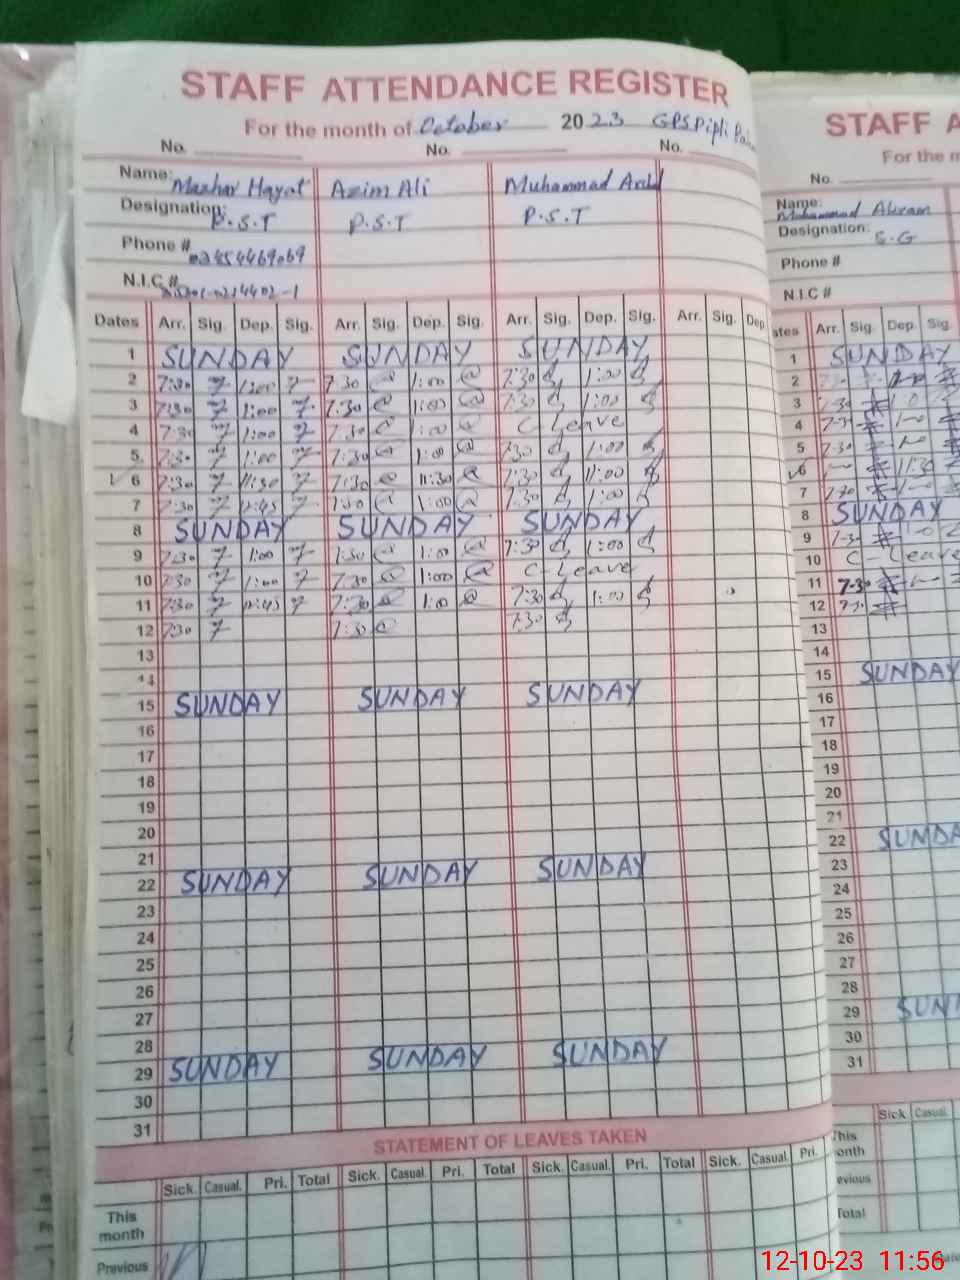 STAFF ATTENDANCE REGISTER
For the month of October 2023 GPS Pipli
No. No. No.
Name: Mazhar Hayat Azim Ali Muhammad
Designation: P.S.T P.S.T P.S.T
Phone #
N.I.C #
Dates Arr. Sig. Dep. Sig. Arr. Sig. Dep. Sig. Arr. Sig. Dep. Sig. Arr. Sig. Dep
1 SUNDAY SUNDAY SUNDAY
2 7:30 1:00 7:30 1:00 7:30 1:00
3 7:30 1:00 7:30 1:00 7:30 1:00
4 7:30 1:00 7:30 1:00 C Leave
5 7:30 1:00 7:30 1:00 7:30 1:00
6 7:30 11:30 7:30 11:30 7:30 11:00
7 7:30 12:45 7:30 1:00 7:30 1:00
8 SUNDAY SUNDAY SUNDAY
9 7:30 1:00 7:30 1:00 7:30 1:00
10 7:30 1:00 7:30 1:00 C Leave
11 7:30 12:45 7:30 1:00 7:30 1:00
12 7:30 7:30 7:30
13
14
15 SUNDAY SUNDAY SUNDAY
16
17
18
19
20
21
22 SUNDAY SUNDAY SUNDAY
23
24
25
26
27
28
29 SUNDAY SUNDAY SUNDAY
30
31
STATEMENT OF LEAVES TAKEN
Sick. Casual. Pri. Total Sick. Casual. Pri. Total Sick. Casual. Pri. Total Sick. Casual. Pri.
This month
Previous
STAFF A
For the m
No.
Name: Muhammad Akram
Designation: S.G
Phone #
N.I.C #
ates Arr. Sig. Dep. Sig.
1 SUNDAY
2
3 7-30
4 7-30
5 7-30
6 11:30
7 7-30
8 SUNDAY
9 7-30
10 C-Leave
11 7-30
12 7-30
13
14
15 SUNDAY
16
17
18
19
20
21
22 SUNDA
23
24
25
26
27
28
29 SUN
30
31
Sick. Casual.
This
onth
evious
Total
12-10-23 11:56